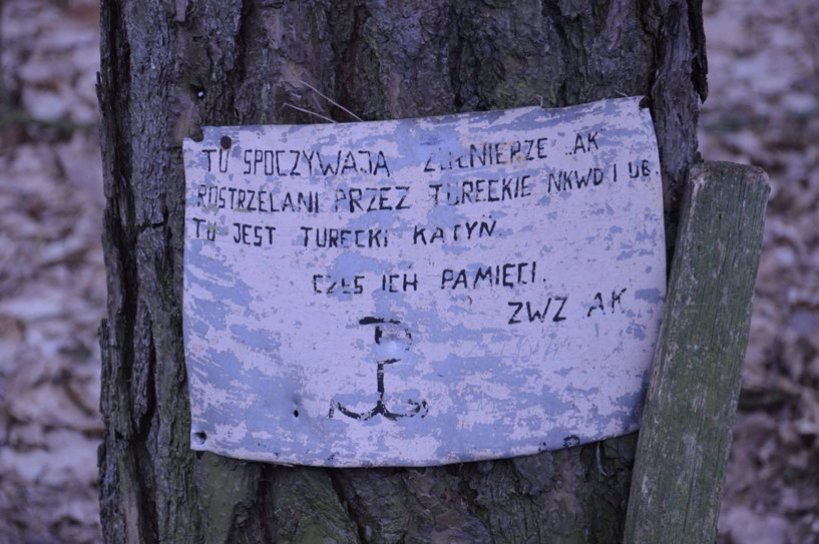 TU SPOCZYWAJĄ ŻOŁNIERZE „AK"
ROSTRZELANI PRZEZ TURECKIE NKWD I UB.
TU JEST TURECKI KATYŃ
CZEŚ ICH PAMIĘCI.
ZWZ AK